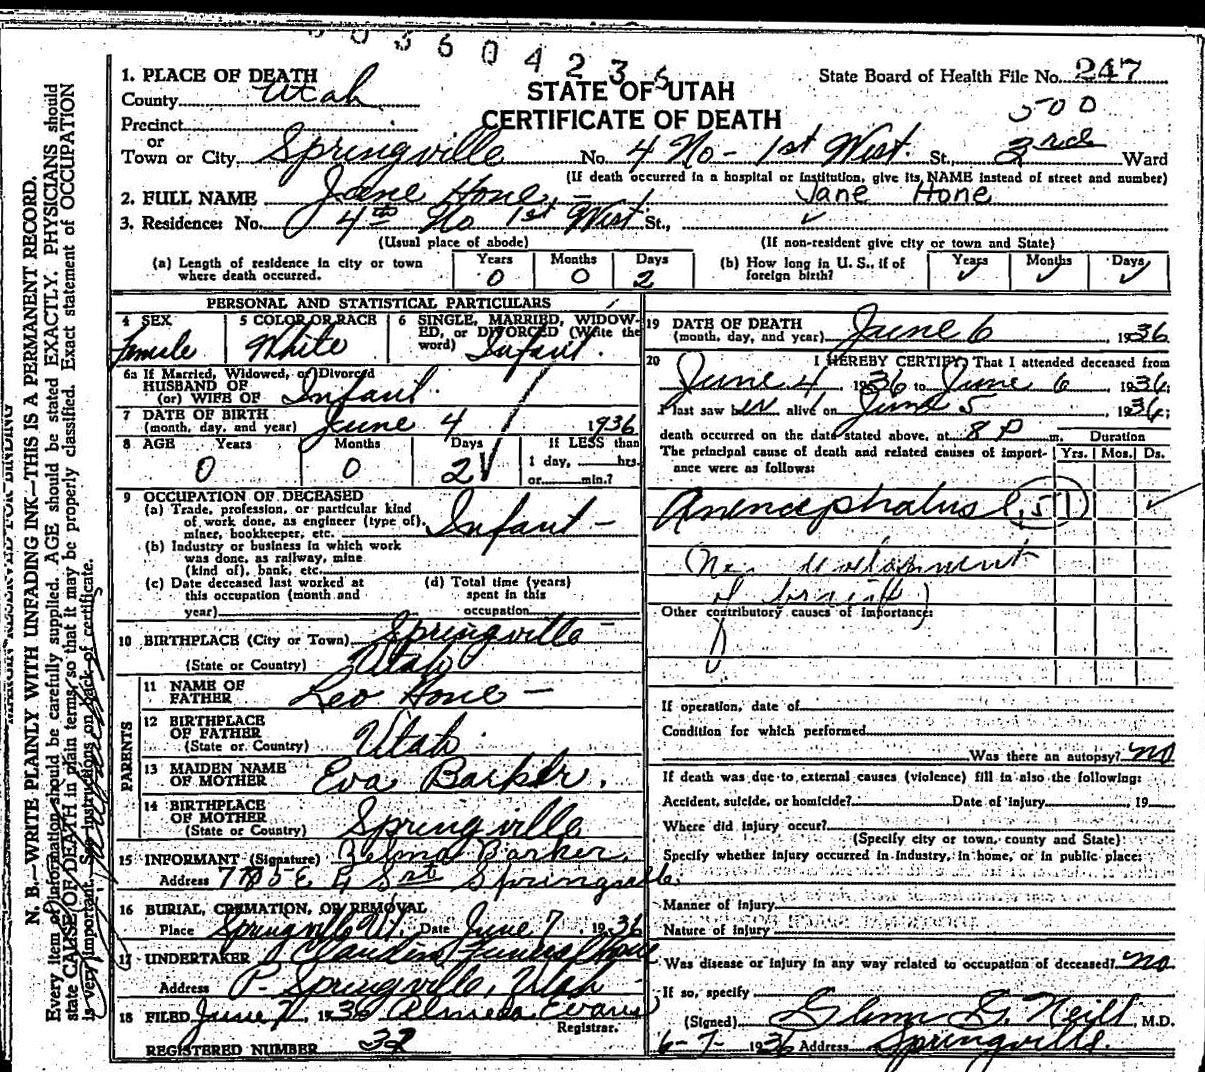 0 0 3 6 0 4 2 3 5
1. PLACE OF DEATH
State Board of Health File No. 247
County Utah
STATE OF UTAH
500
Precinct
CERTIFICATE OF DEATH
or
Town or City, Springville No. 4 No - 1st West. St., 3rd Ward
(If death occurred in a hospital or institution, give its NAME instead of street and number)
2. FULL NAME Jane Hone Jane Hone
3. Residence: No. 4th No 1st West St.,
(Usual place of abode) (If non-resident give city or town and State)
(a) Length of residence in city or town where death occurred. Years 0 Months 0 Days 2
(b) How long in U. S., if of foreign birth? Years Months Days
PERSONAL AND STATISTICAL PARTICULARS
4 SEX Female
5 COLOR OR RACE White
6 SINGLE, MARRIED, WIDOWED, or DIVORCED (Write the word) Infant.
6a If Married, Widowed, or Divorced
HUSBAND OF
(or) WIFE OF Infant.
7 DATE OF BIRTH
(month, day, and year) June 4 1936
8 AGE Years 0 Months 0 Days 2 If LESS than
1 day, hrs.
or min.?
9 OCCUPATION OF DECEASED
(a) Trade, profession, or particular kind
of work done, as engineer (type of),
miner, bookkeeper, etc. Infant -
(b) Industry or business in which work
was done, as railway, mine
(kind of), bank, etc.
(c) Date deceased last worked at
this occupation (month and
year)
(d) Total time (years)
spent in this
occupation
10 BIRTHPLACE (City or Town) Springville
(State or Country) Utah
PARENTS
11 NAME OF
FATHER Leo Hone -
12 BIRTHPLACE
OF FATHER
(State or Country) Utah.
13 MAIDEN NAME
OF MOTHER Eva Barker.
14 BIRTHPLACE
OF MOTHER
(State or Country) Springville
15 INFORMANT (Signature) Zelma Barker.
Address Springville
16 BURIAL, CREMATION, OR REMOVAL
Place Springville Ut. Date June 7 1936
17 UNDERTAKER Claudin Funeral Home
Address Springville, Utah
18 FILED June 7, 1936 Almeda Evans
Registrar.
REGISTERED NUMBER 32
19 DATE OF DEATH
(month, day, and year) June 6, 1936
20 I HEREBY CERTIFY, That I attended deceased from
June 4 1936 to June 6, 1936;
I last saw her alive on June 5, 1936;
death occurred on the date stated above, at 8 P m.
Duration
The principal cause of death and related causes of importance were as follows: Yrs. Mos. Ds.
Anencephalus 157
of brain)
Other contributory causes of importance:
If operation, date of
Condition for which performed
Was there an autopsy? no
If death was due to external causes (violence) fill in also the following:
Accident, suicide, or homicide? Date of injury , 19
Where did injury occur?
(Specify city or town, county and State)
Specify whether injury occurred in industry, in home, or in public place:
Manner of injury
Nature of injury
Was disease or injury in any way related to occupation of deceased? no
If so, specify
(Signed) Glenn G. Neill, M.D.
6-7- 1936 Address Springville.
MARGIN RESERVED FOR BINDING
N. B.—WRITE PLAINLY WITH UNFADING INK—THIS IS A PERMANENT RECORD.
Every item of information should be carefully supplied. AGE should be stated EXACTLY. PHYSICIANS should
state CAUSE OF DEATH in plain terms, so that it may be properly classified. Exact statement of OCCUPATION
is very important. See instructions on back of certificate.